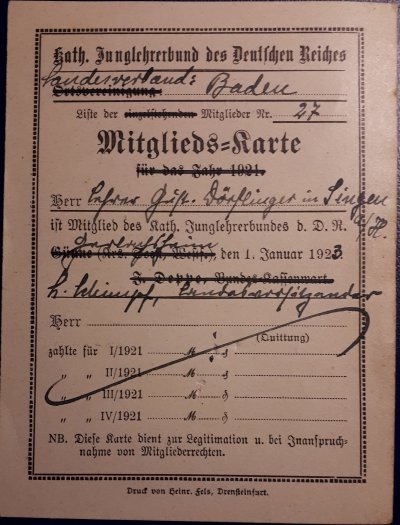 Kath. Junglehrerbund des Deutschen Reiches
Landesverband: Baden
Ortsvereinigung:
Liste der einzelstehenden Mitglieder Nr. 27
Mitglieds-Karte
für das Jahr 1921.
Herr Lehrer Gust. Dörflinger in Singen
a/H.
ist Mitglied des Kath. Junglehrerbundes d. D. R.
(Krs. Soest, Westf.), den 1. Januar 1923.
J. Deppe, Bundes-Kassenwart
H. Schimpf, Landesvorsitzender
Herr
(Quittung)
zahlte für I/1921 M ₰
„ „ II/1921 M ₰
„ „ III/1921 M ₰
„ „ IV/1921 M ₰
NB. Diese Karte dient zur Legitimation u. bei Inanspruch-
nahme von Mitgliederrechten.
Druck von Heinr. Fels, Drensteinfurt.